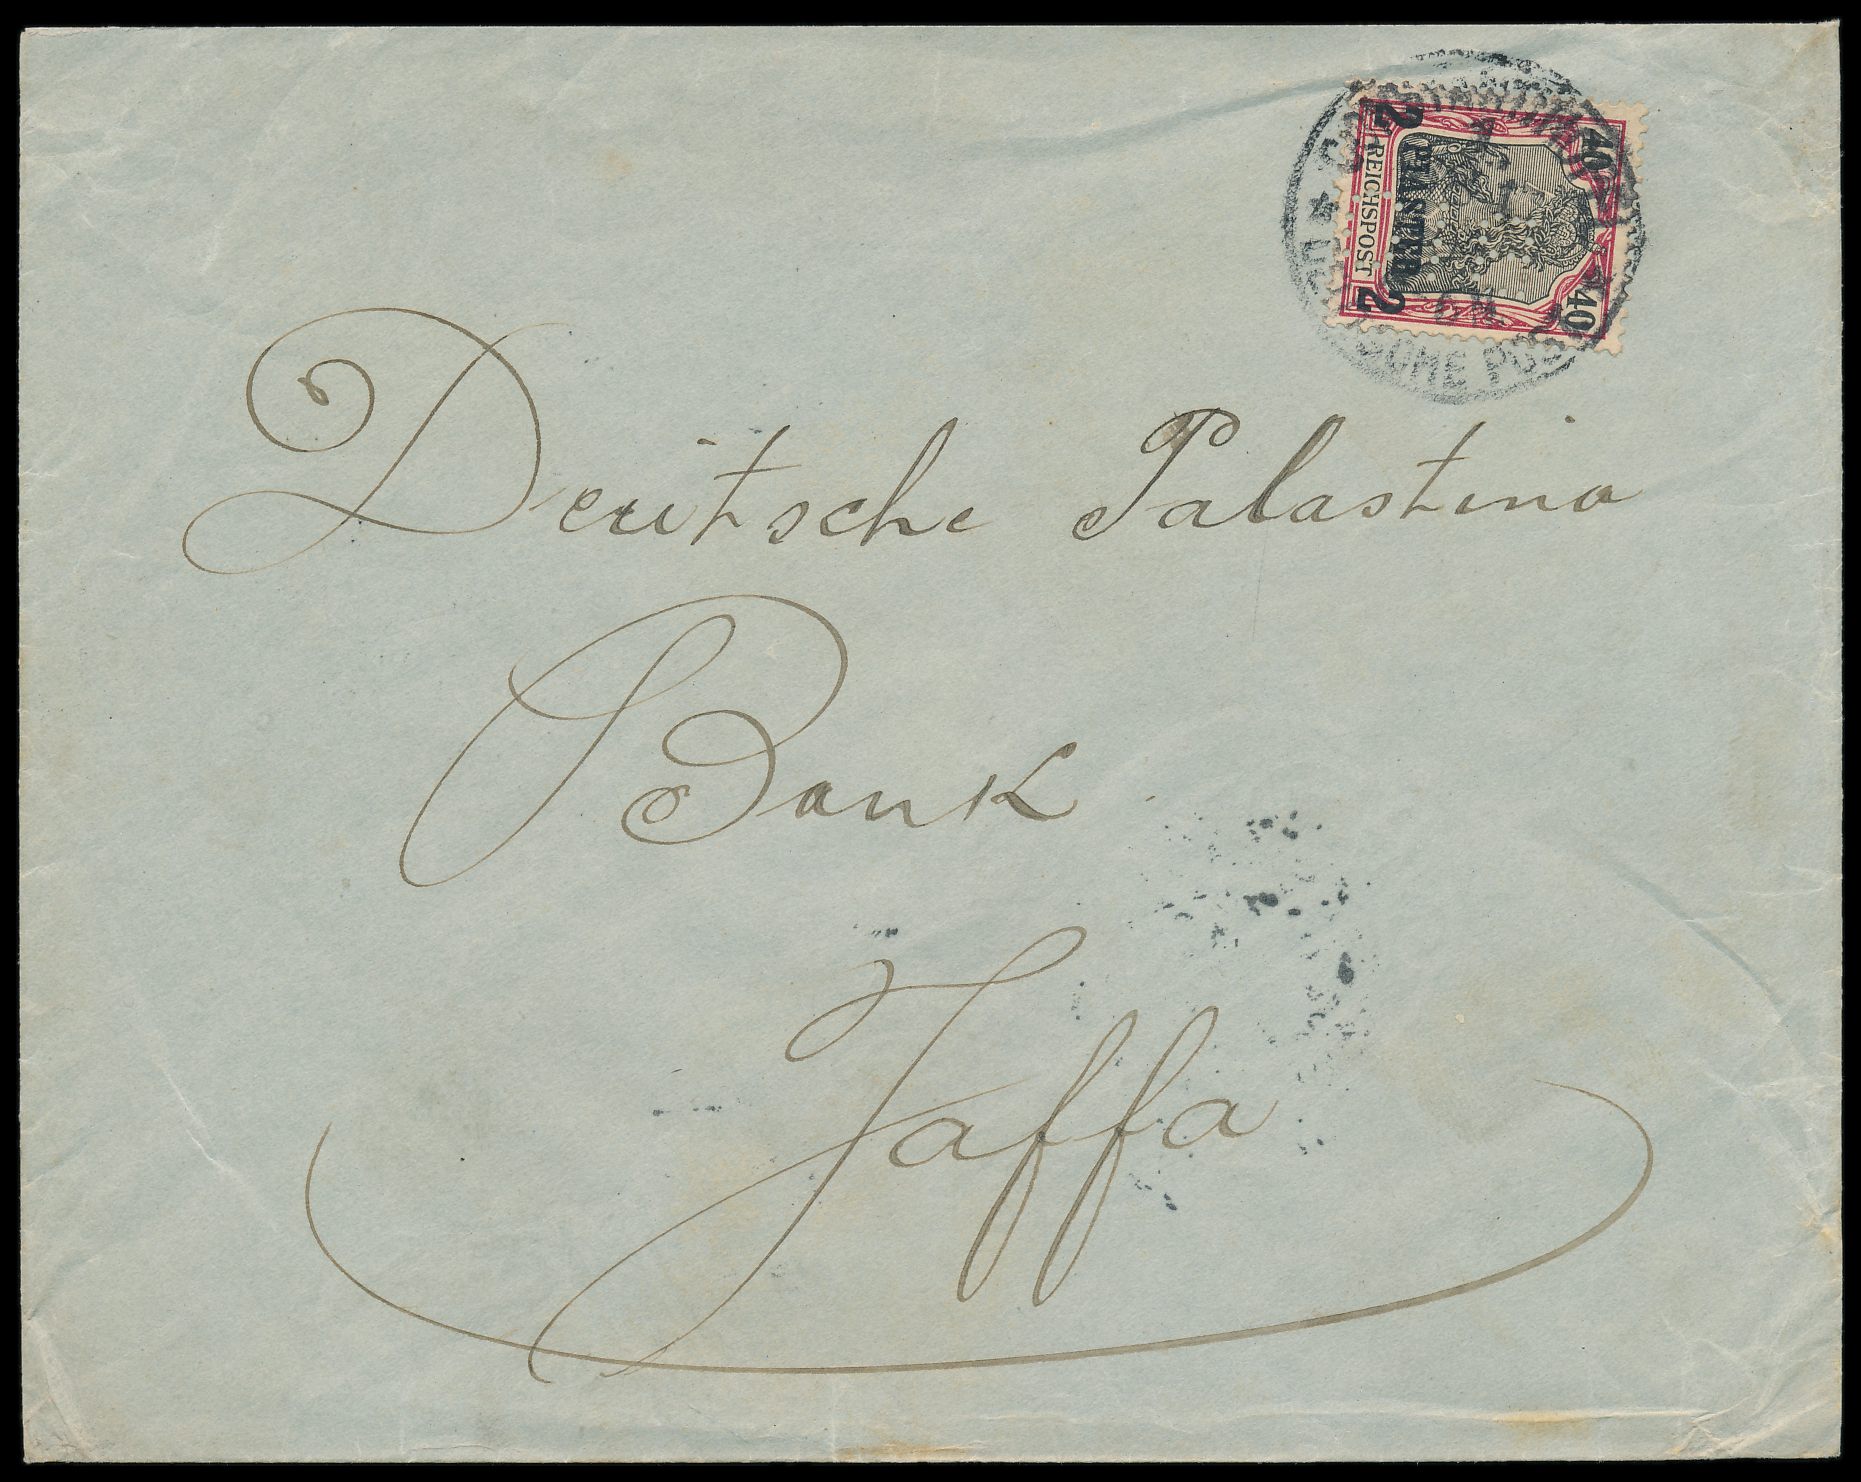 40 40
REICHSPOST
2 PIASTER 2
DEUTSCHE POST
Deutsche Palastina
Bank
Jaffa